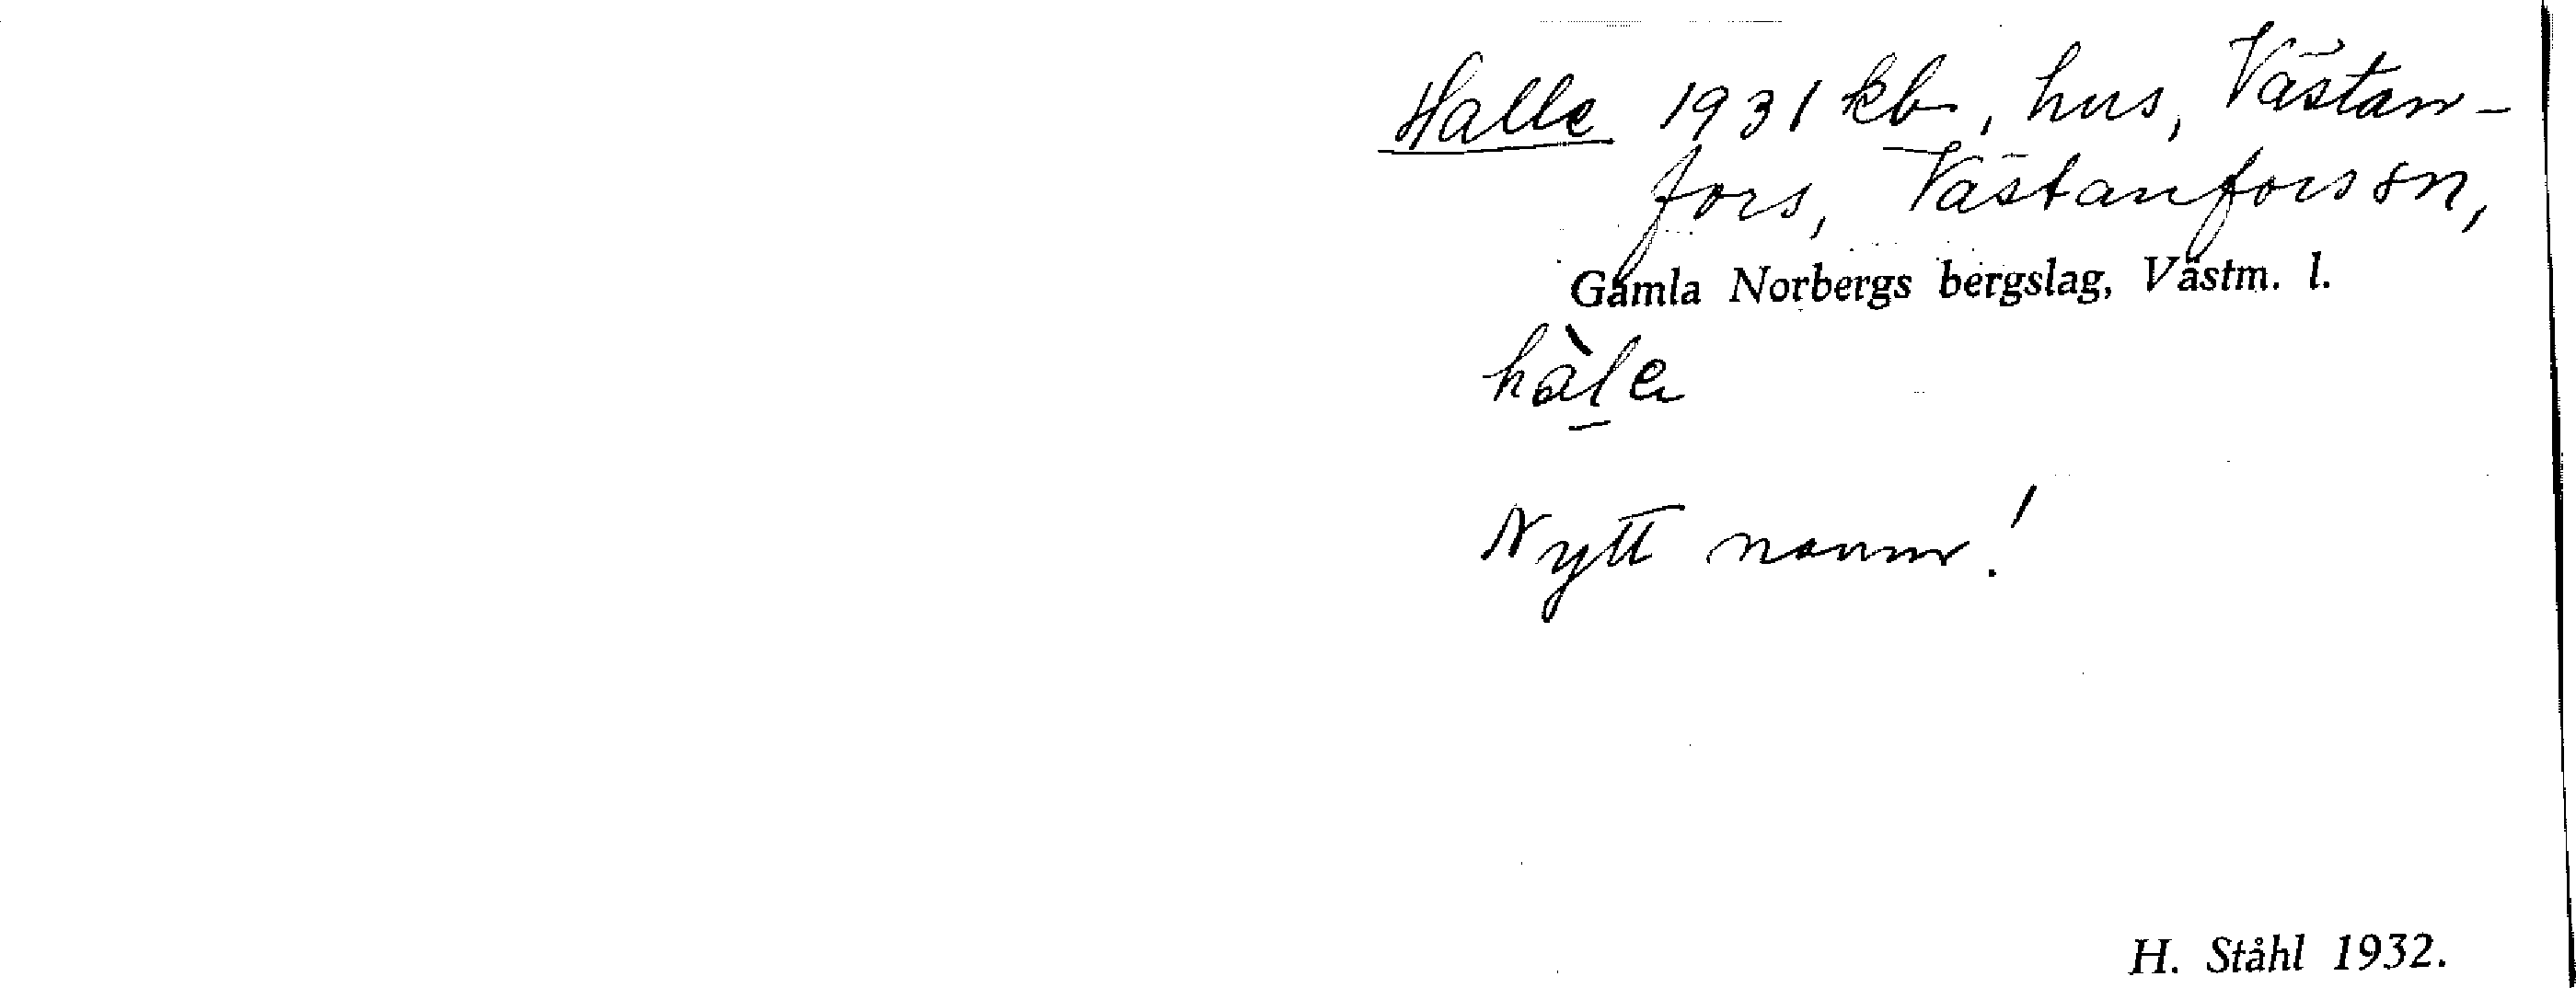 Halle 1931 kb, hus, Västan-
fors, Västanfors sn,
Gamla Norbergs bergslag, Västm. l.
hàle
Nytt namn!
H. Ståhl 1932.